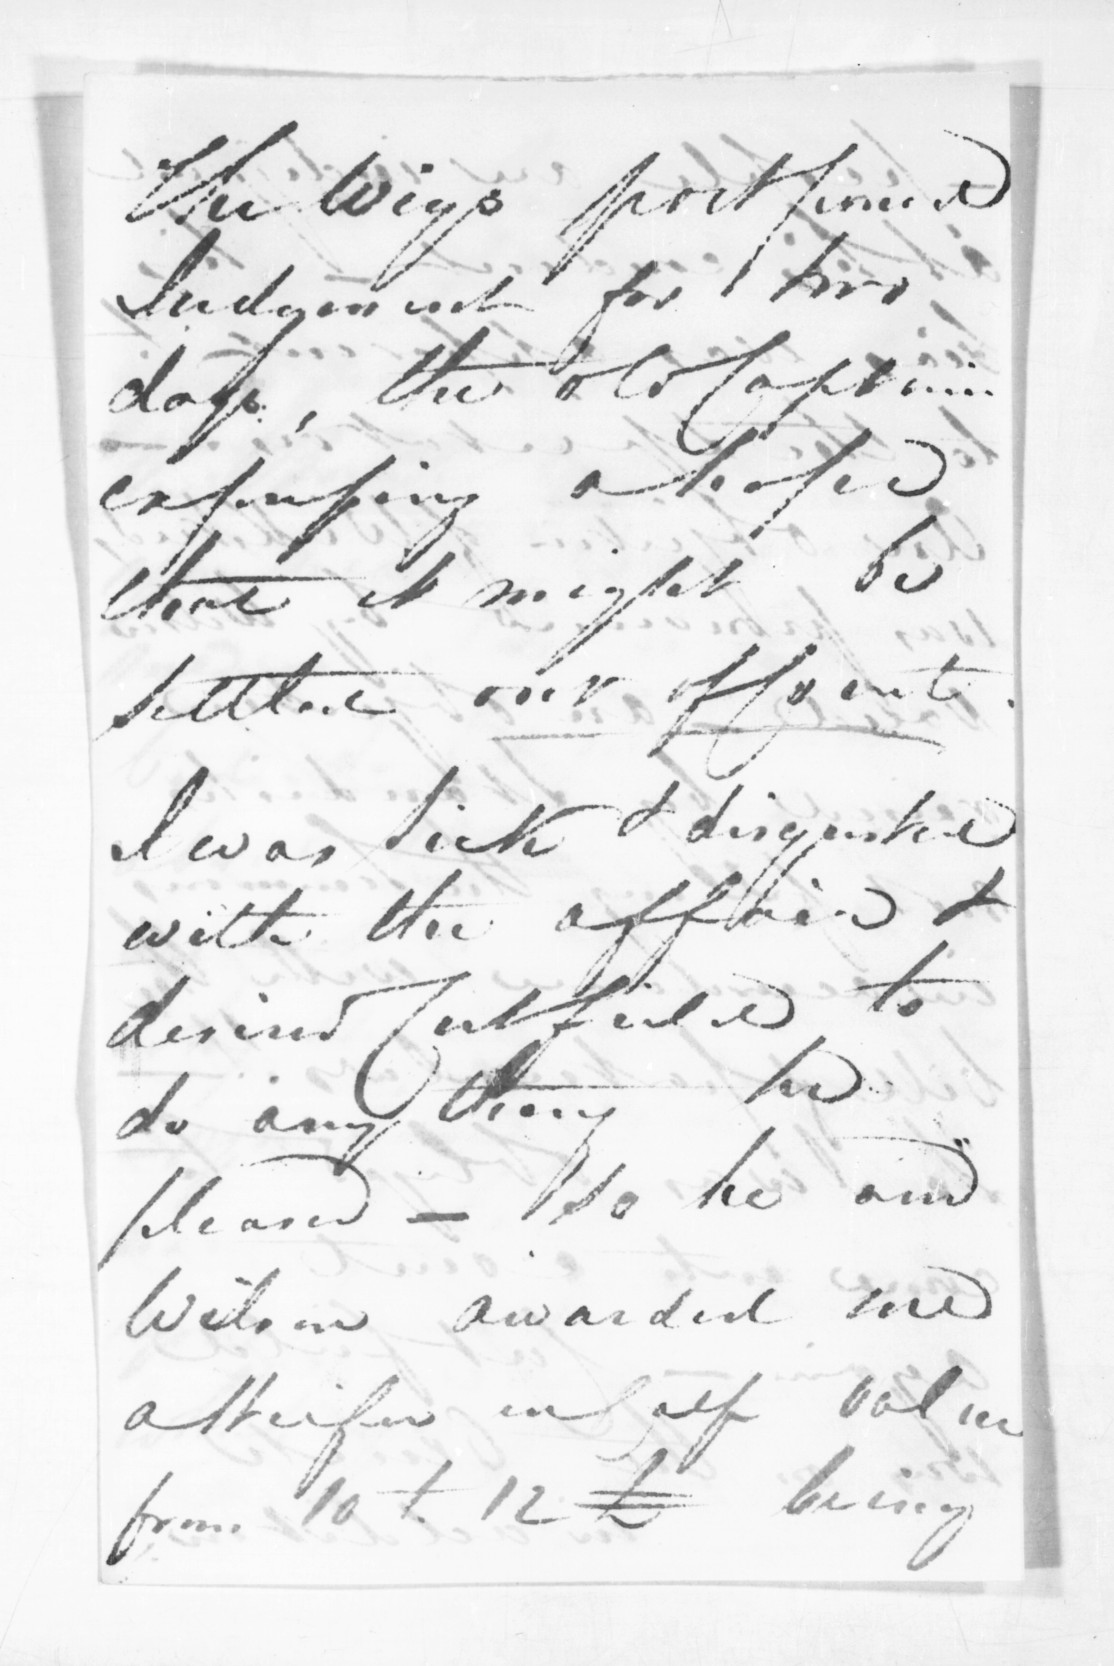 the Wigs postponed
Judgement for two
days, the old Captain
expressing a hope
that it might be
settled out of Court.
I was sick & disgusted
with the affair &
desired Cutfield to
do any thing he
pleased — so he and
Wilson awarded me
a Heifer in Calf value
from 10 to 12 £ being